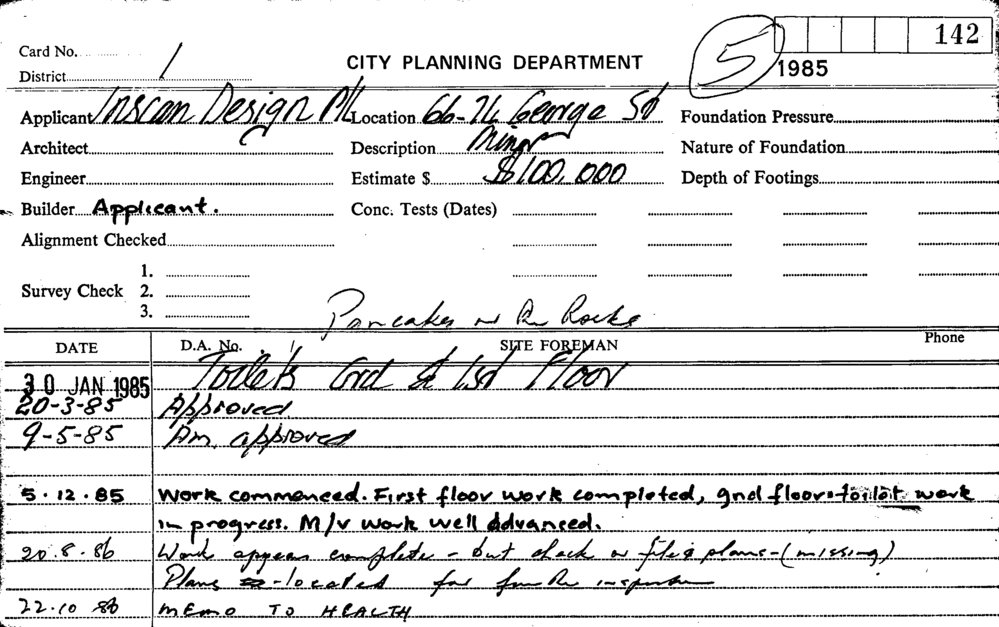 142
5
1985
Card No.
District 1
CITY PLANNING DEPARTMENT
Applicant Inscan Design P/L Location 66-74 George St Foundation Pressure
Architect Description Minor Nature of Foundation
Engineer Estimate $ $100,000 Depth of Footings
Builder Applicant. Conc. Tests (Dates)
Alignment Checked
1.
Survey Check 2.
3.
Pancakes on the Rocks
DATE D.A. No. SITE FOREMAN Phone
30 JAN 1985 Toilets Grd & 1st Floor
20-3-85 Approved
9-5-85 Am. approved
5.12.85 Work commenced. First floor work completed, gnd floor toilet work
in progress. M/v work well advanced.
20.8.86 Work appears complete - but check on file & plans - (missing)
Plans - located for further inspection
22.10 86 MEMO TO HEALTH